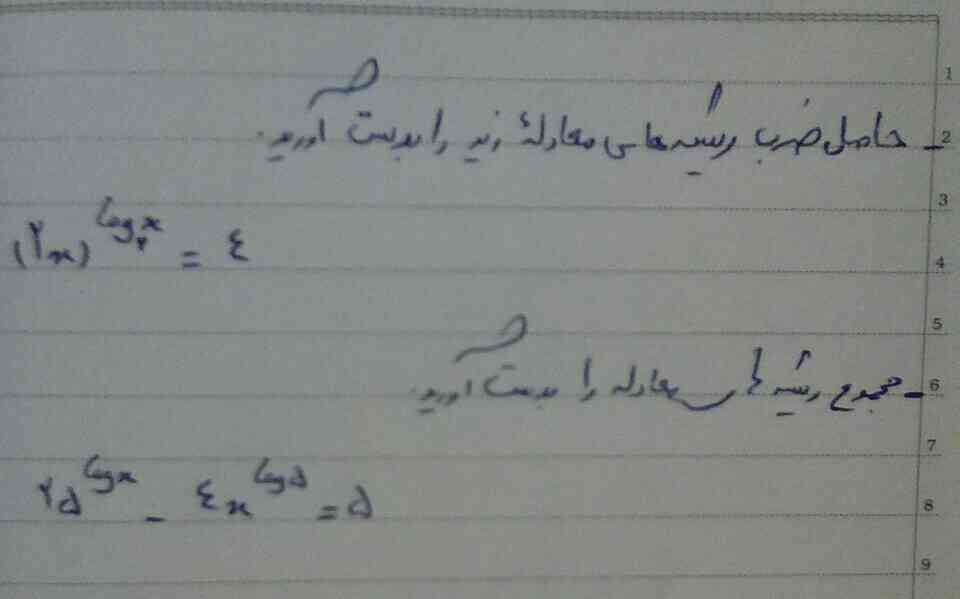 1
2
- حاصل ضرب ریشه های معادلهٔ زیر را بدست آورید.
3
(۲x)^log_۲ x = ٤
4
5
6
- مجموع ریشه های معادله را بدست آورید.
7
۲۵^log x - ٤x^log ۵ = ۵
8
9